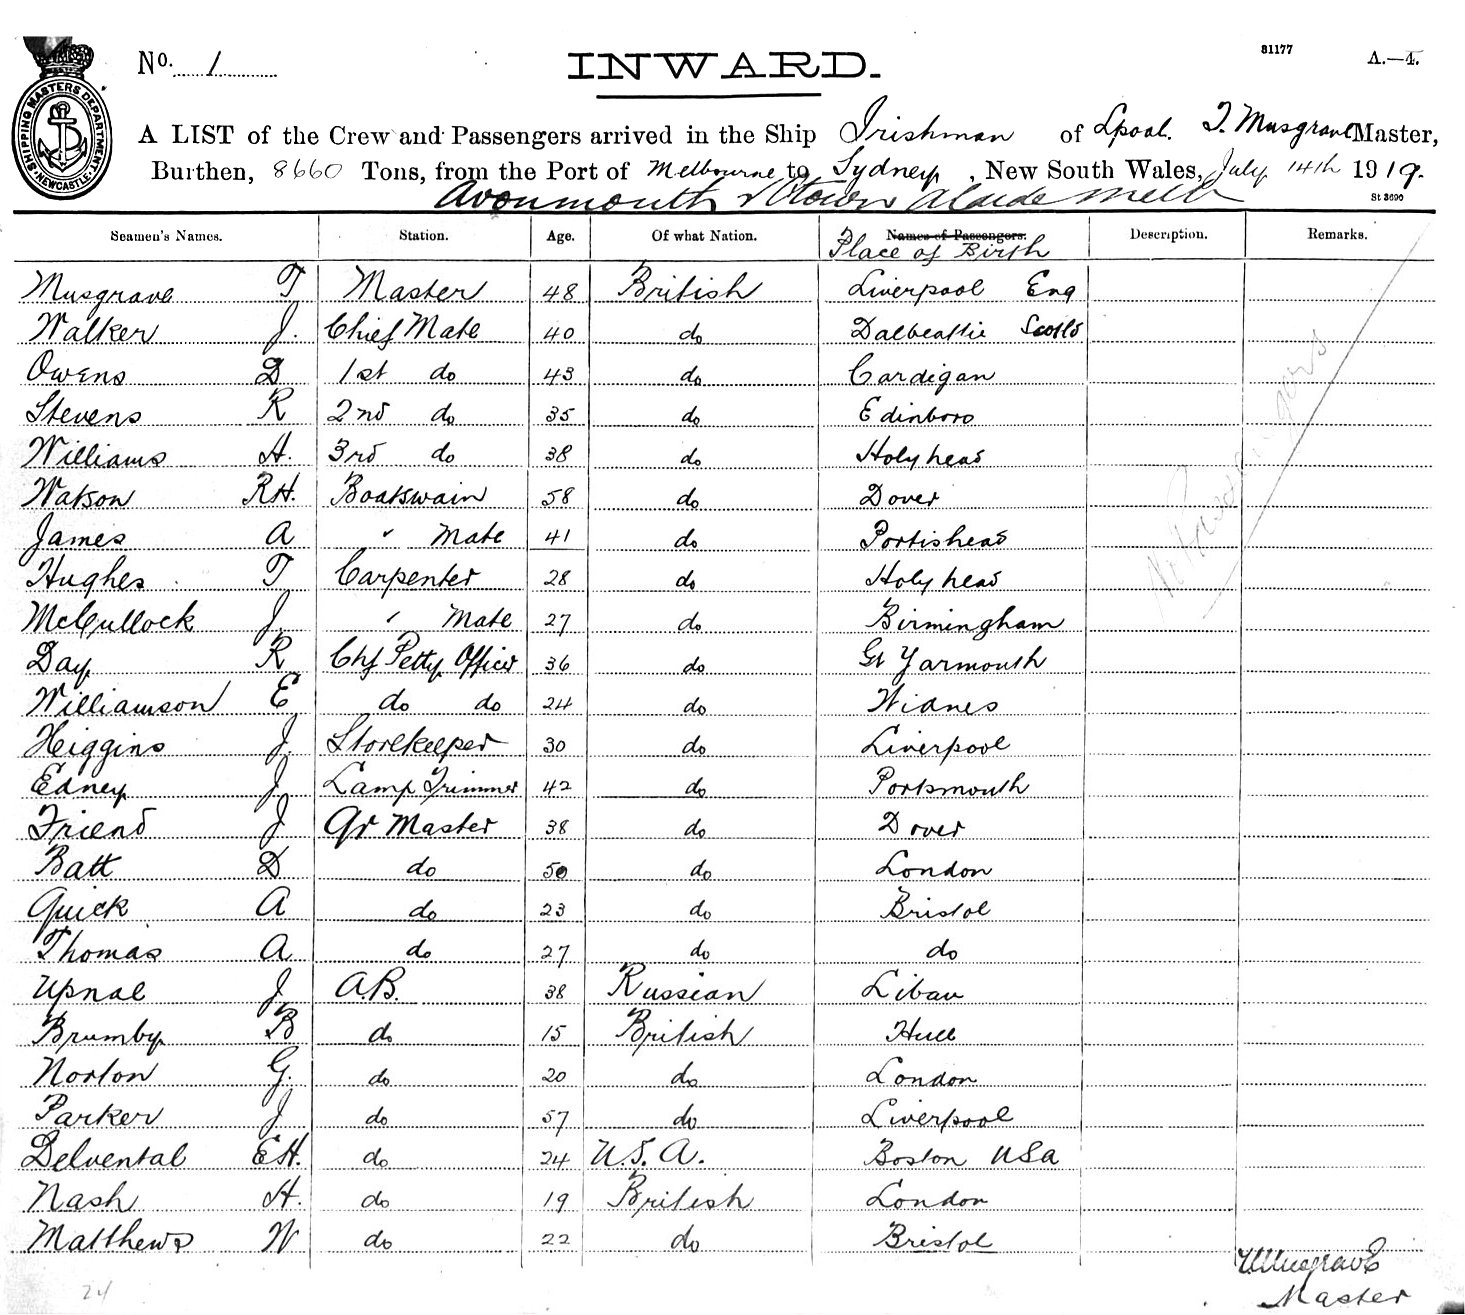 SHIPPING MASTERS DEPARTMENT NEWCASTLE
No. 1 INWARD. 81177 A.—4.
A LIST of the Crew and Passengers arrived in the Ship Irishman of Lpool. T. Musgrave Master,
Burthen, 8660 Tons, from the Port of Melbourne to Sydney, New South Wales, July 14th 1919.
Avonmouth Melb St 3690
Seamen's Names. Station. Age. Of what Nation. Names of Passengers. Description. Remarks.
Place of Birth
Musgrave T Master 48 British Liverpool Eng
Walker J. Chief Mate 40 do Dalbeattie Scotld
Owens D 1st do 43 do Cardigan
Stevens R 2nd do 35 do Edinboro
Williams H. 3rd do 38 do Holyhead
Watson RH. Boatswain 58 do Dover
James A " Mate 41 do Portishead
Hughes T Carpenter 28 do Holyhead
McCullock J " Mate 27 do Birmingham
Day R Chf Petty Officer 36 do Gt Yarmouth
Williamson E do do 24 do Widnes
Higgins J Storekeeper 30 do Liverpool
Edney J Lamp Trimmer 42 do Portsmouth
Friend J Qr Master 38 do Dover
Batt D do 50 do London
Quick A do 23 do Bristol
Thomas A do 27 do do
Upnal J A.B. 38 Russian Libau
Brumby B do 15 British Hull
Norton G. do 20 do London
Parker J do 57 do Liverpool
Delvental EH. do 24 U.S.A. Boston USA
Nash H. do 19 British London
Matthews W do 22 do Bristol
No Passengers
T Musgrave
Master
24